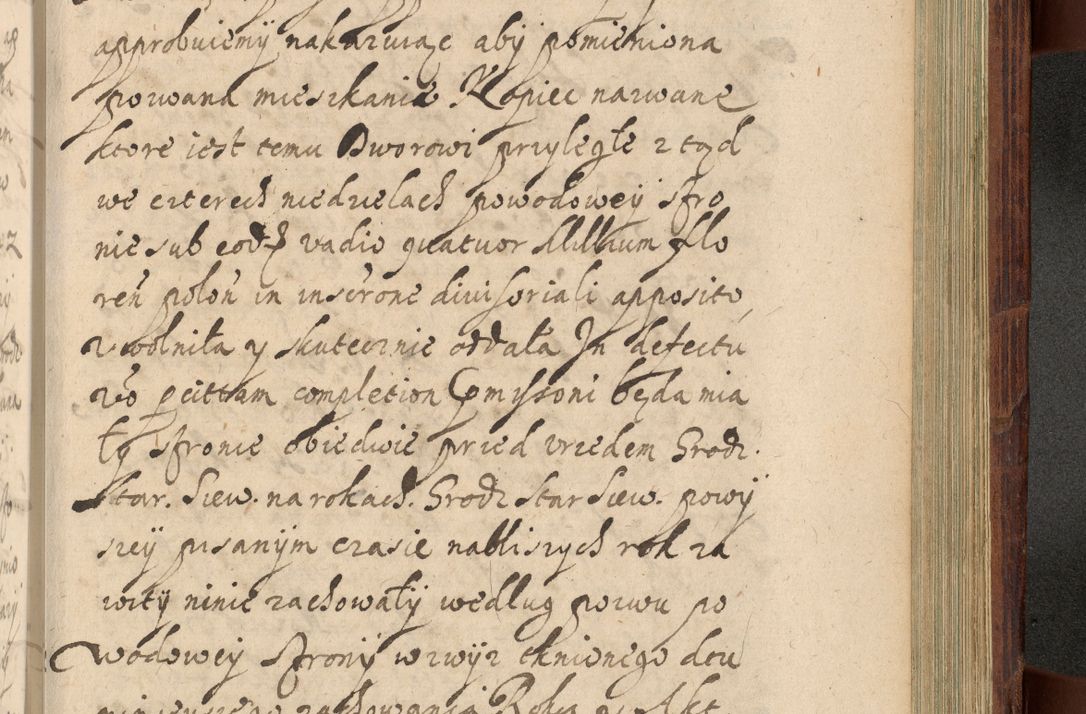 approbuiemÿ nakazuiąc abÿ pomieniona
pozwana mieszkanie Kopiec nazwane
ktore iest temu Dworowi przyległe z tąd
we czterech niedzielach powodowey stro
nie sub eod vadio quatuor Millium flo
reń poloń in inscrone divisoriali apposito,
zwolniła y skutecznie oddała In defectu
vo completion Cpmissoni będa mia
ły stronie obiedwie przed vrzedem Grodz.
Star. Siew. na rokach. Grodz Star Siew. powÿ
szeÿ pisanÿm czasie nabliszych rok za
witÿ ninie zachowałÿ według pozwu po
wodowey stronÿ wzwÿz tknionego dcu
zachowania Roku